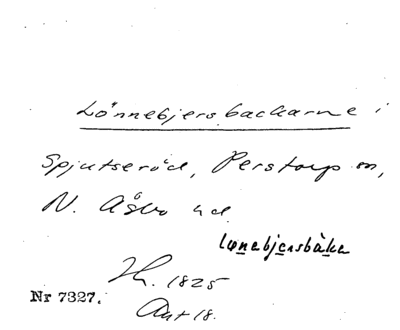 Lönnebjersbackarne i
Spjutseröd, Perstorp sn,
N. Åsbo hd.
lonebjersbåka
H. 1825
Nr 7327.
Akt 18.